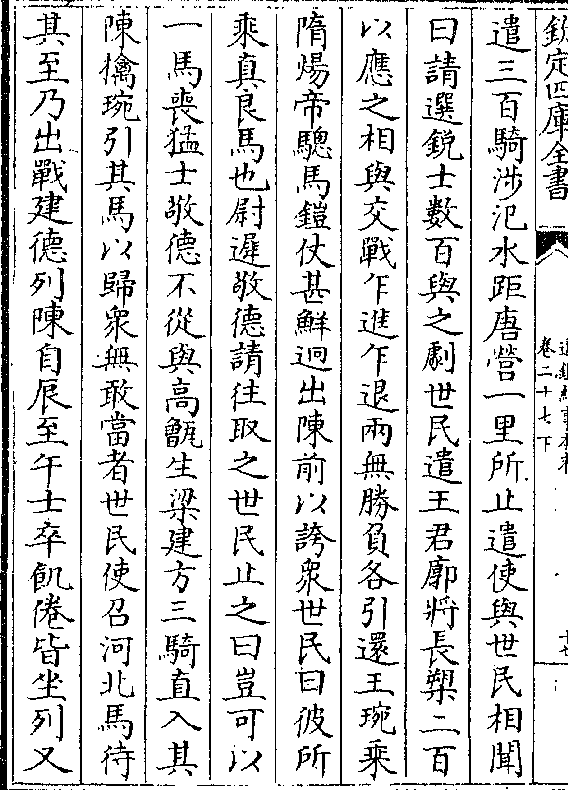 欽定四庫全書
卷二十七下
遣三百騎涉汜水距唐營一里所止遣使與世民相聞
曰請選銳士數百與之劇世民遣王君廓將長槊二百
以應之相與交戰乍進乍退兩無勝負各引還王琬乘
隋煬帝驄馬鎧仗甚鮮迥出陳前以誇衆世民曰彼所
乘真良馬也尉遲敬德請往取之世民止之曰豈可以
一馬喪猛士敬德不從與高甑生梁建方三騎直入其
陳擒琬引其馬以歸衆無敢當者世民使召河北馬待
其至乃出戰建德列陳自辰至午士卒飢倦皆坐列又